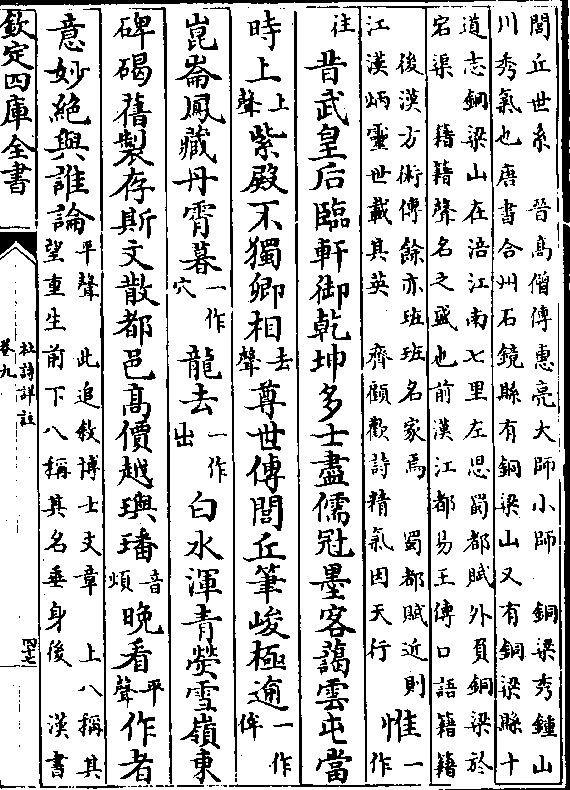 閭丘世系　晉高僧傳惠亮大師小師　銅梁秀鍾山
川秀氣也唐書合州石鏡縣有銅梁山又有銅梁縣十
道志銅梁山在涪江南七里左思蜀都賦外負銅梁於
宕渠　籍籍聲名之盛也前漢江都易王傳口語籍籍
後漢方術傳餘亦班班名家焉　蜀都賦近則
江漢炳靈世載其英　齊顧歡詩精氣因天行　惟一作
往昔武皇后臨軒御乾坤多士盡儒冠墨客藹雲屯當
時上上聲紫殿不獨卿相去聲尊世傳閭丘筆峻極逾一作侔
崑崙鳳藏丹霄暮一作穴龍去一作出白水渾青熒雪嶺東
碑碣舊製存斯文散都邑高價越璵璠音煩晚看平聲作者
意妙絕與誰論平聲　此追敘博士文章　上八稱其
望重生前下八稱其名垂身後　漢書
欽定四庫全書
杜詩詳註
卷九
四十七